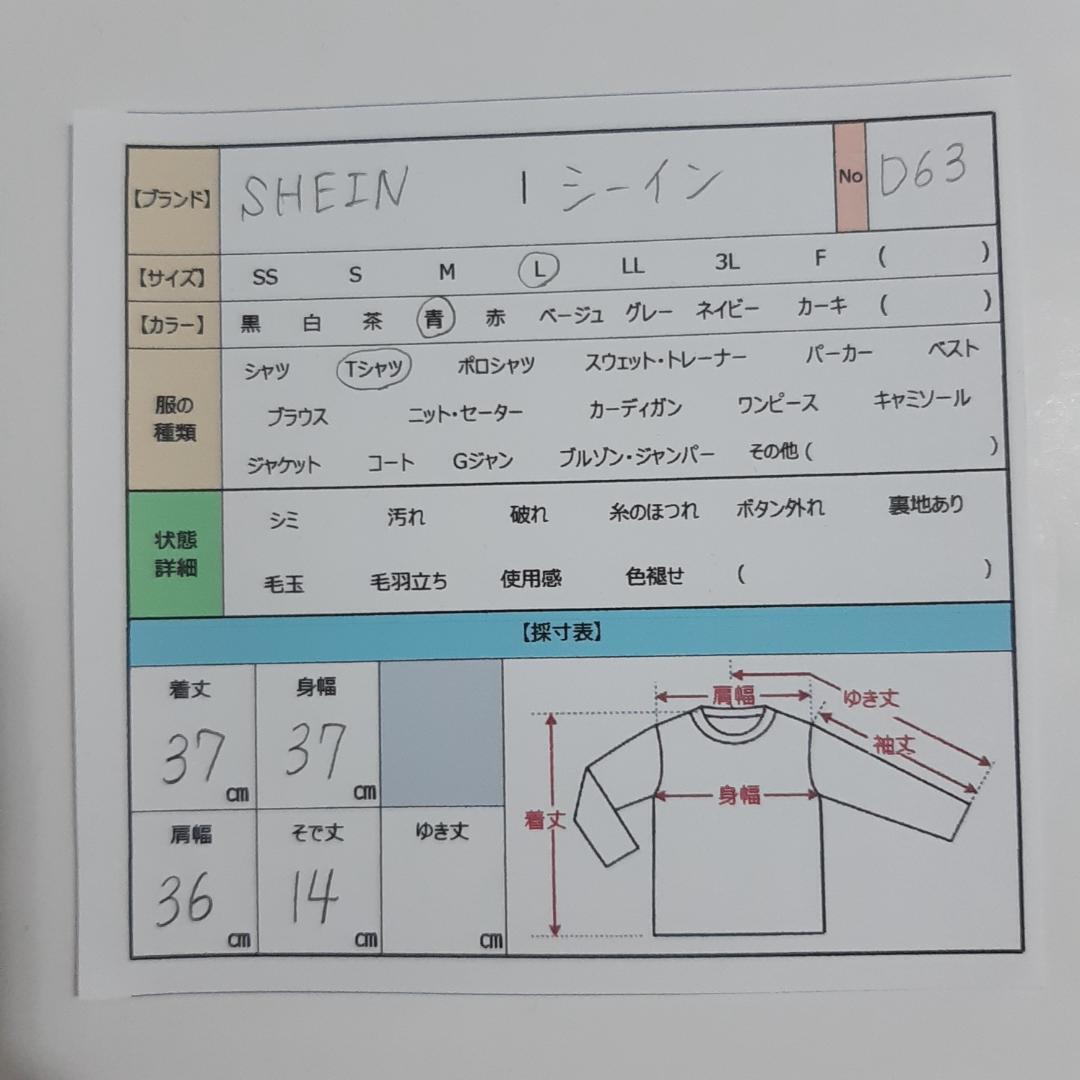 【ブランド】 SHEIN | シーイン No D63
【サイズ】 SS S M L LL 3L F ( )
【カラー】 黒 白 茶 青 赤 ベージュ グレー ネイビー カーキ ( )
服の種類
シャツ Tシャツ ポロシャツ スウェット・トレーナー パーカー ベスト
ブラウス ニット・セーター カーディガン ワンピース キャミソール
ジャケット コート Gジャン ブルゾン・ジャンパー その他 ( )
状態詳細
シミ 汚れ 破れ 糸のほつれ ボタン外れ 裏地あり
毛玉 毛羽立ち 使用感 色褪せ ( )
【採寸表】
着丈 身幅
37 cm 37 cm
肩幅 そで丈 ゆき丈
36 cm 14 cm cm
肩幅 ゆき丈
袖丈
身幅
着丈